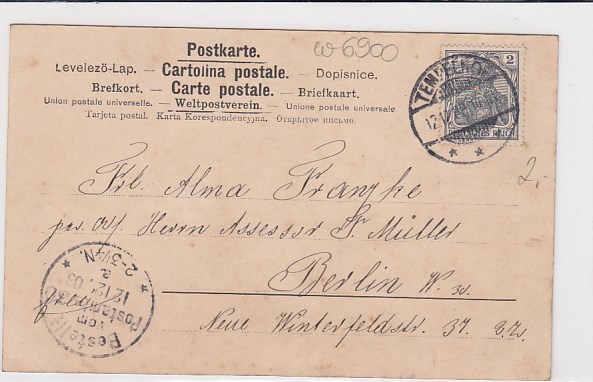 w 6900
Postkarte.
Levelező-Lap. — Cartolina postale. — Dopisnice.
Brefkort. — Carte postale. — Briefkaart.
Union postale universelle. — Weltpostverein. — Unione postale universale
Tarjeta postal. Karta Korespondencyjna. Открытое письмо
2
DEUTSCHES REICH
12.12.
2.-
Frl. Alma Franzke
Herrn Assessor F. Müller
Berlin W. 30.
Neue Winterfeldstr. 37.
Bestellt
vom
Postamte 30
12/12. 03
2-3¼N.